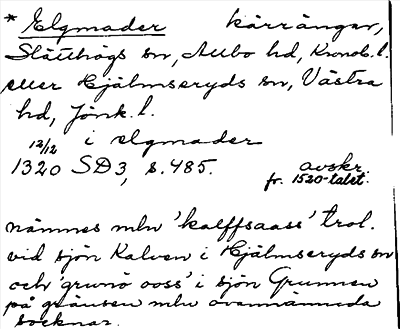 * Elgmader kärrängar,
Slätthögs sn, Allbo hd, Kronob. l.
eller Hjälmseryds sn, Västra
hd, Jönk. l.
12/12 i elgmader
1320 SD3, s. 485. avskr.
fr. 1520-talet.
nämnes mln 'kalffsaass' trol.
vid sjön Kalven i Hjälmseryds sn
och 'grunö ooss' i sjön Grunnen
på gränsen mln ovannämnda
socknar.